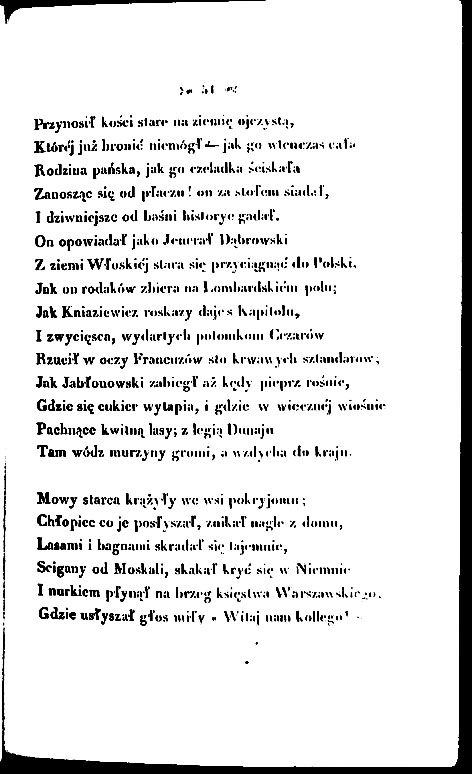 51
Przynosił kości stare na ziemię ojczystą,
Którėj już bronić niemógł — jak go wtenczas cała
Rodzina pańska, jak go czeladka ściskała
Zanosząc się od płaczu! on za stołem siadał,
I dziwniejsze od baśni historye gadał.
On opowiadał jako Jenerał Dąbrowski
Z ziemi Włoskiéj stara się przyciągnąć do Polski,
Jak on rodaków zbiera na Lombardskiém polu;
Jak Kniaziewicz roskazy daje s Kapitolu,
I zwycięsca, wydartych potomkom Cezarów
Rzucił w oczy Francuzów sto krwawych sztandarow;
Jak Jabłonowski zabiegł aż kędy pieprz rośnie,
Gdzie się cukier wytapia, i gdzie w wiecznéj wiośnie
Pachnące kwitną lasy; z legią Dunaju
Tam wódz murzyny gromi, a wzdycha do kraju.
Mowy starca krążyły we wsi pokryjomu;
Chłopiec co je posłyszał, znikał nagle z domu,
Lasami i bagnami skradał się tajemnie,
Scigany od Moskali, skakał kryć się w Niemnie
I nurkiem płynął na brzeg księstwa Warszawskiego,
Gdzie usłyszał głos miły « Witaj nam kollego!